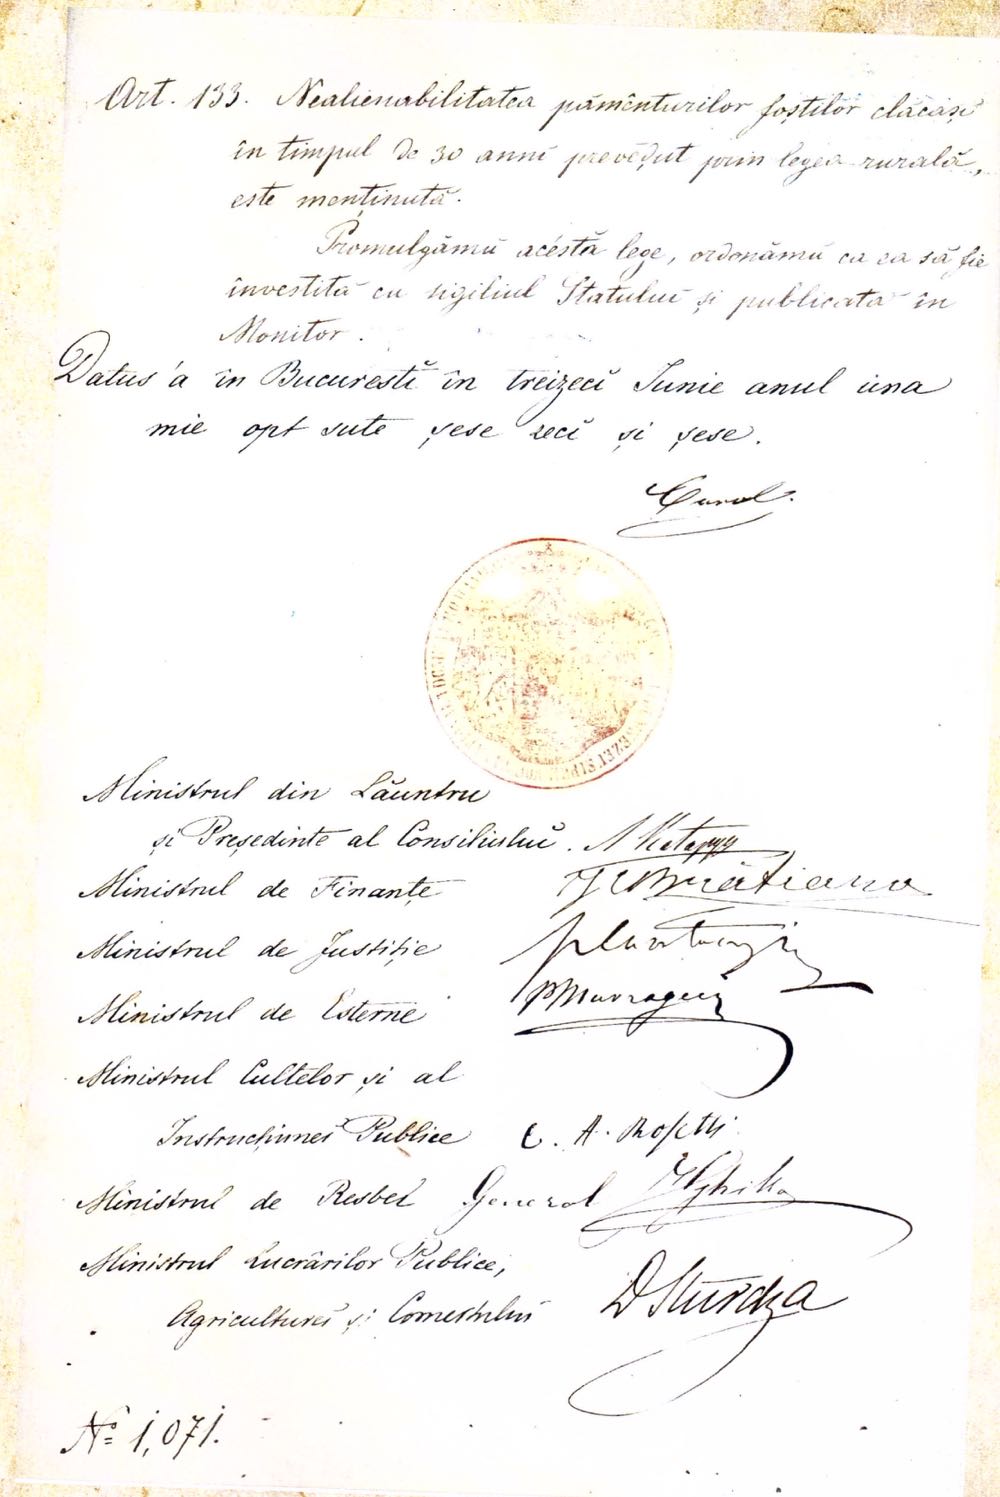 Art. 133. Nealienabilitatea pămênturilor foștilor clăcași
în timpul de 30 anni prevĕḑut prin legea rurală,
este menținută.
Promulgămŭ acéstă lege, ordonămŭ ca ea să fie
învestită cu sigiliul Statuluĭ și publicată în
Monitor.
Datus'a în Bucurestĭ în treizecĭ Iunie anul una
mie opt sute șese zecĭ și șese.
Carol.
Ministrul din Lăuntru
și Președinte al Consiliuluĭ. L Catargi
Ministrul de Finanțe I C Brătianu
Ministrul de Justiție I Cantacuzin
Ministrul de Esterne P Mavrogeni
Ministrul Cultelor și al
Instrucțiuneĭ Publice C. A. Rosetti
Ministrul de Resbel General I Ghika
Ministrul Lucrărilor Publice,
Agricultureĭ și Comerțuluĭ D Sturdza
No 1,071.